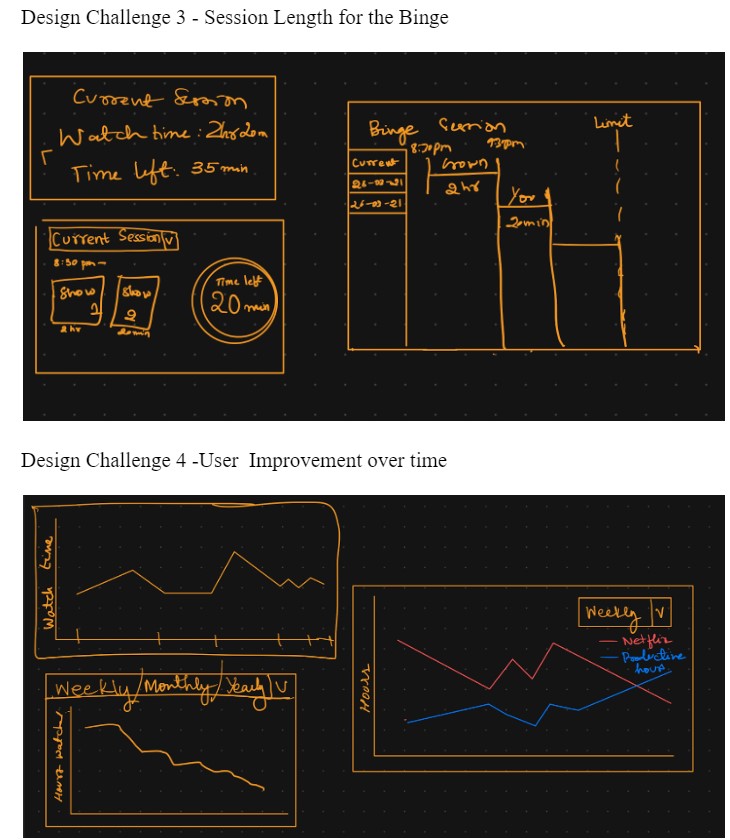 Design Challenge 3 - Session Length for the Binge
Current Session
Watch time : 2hr 20m
Time left: 35 min
Current Session V
8:30 pm -
Show 1
Show 2
2 hr
20min
Time left
20 min
Binge Session
Limit
8:30pm
Current
Crown
2 hr
You
20min
Design Challenge 4 -User  Improvement over time
Watch time
Weekly/Monthly/Yearly V
Hours watched
Weekly V
Netflix
Productive
hours
Hours